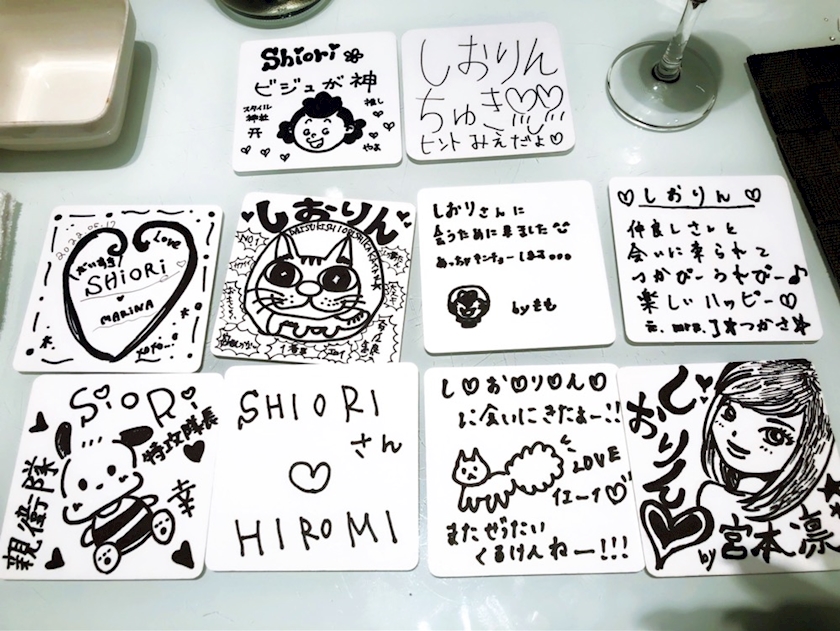 Shiori
ビジュが神
スタイル
神社
推し
やよ
しおりん
ちゅき♡♡
ヒント みえだよ♡
2022.05.17
Love
だいすき
SHIORI
♥
MARINA
XOXO...
♥しおりん♥
DAISUKISHIORISHIKAKATAN
NO.1
カワイイ
1番星
しおりさんに
会うために来ました
めっちゃキンチョーします...
byもも
♡しおりん♡
仲良しさんと
会いに来られて
つかぴーうれぴー♪
楽しいハッピー♡
元. mrs. J★つかさ★
SiORi
特攻隊長
親衛隊
幸
SHIORI
さん
♡
HIROMI
し♡お♡り♡ん♡
に会いにきたよー!!
LOVE
イェーイ♡
またぜったい
くるけんねー!!!
しおりん
by宮本凛